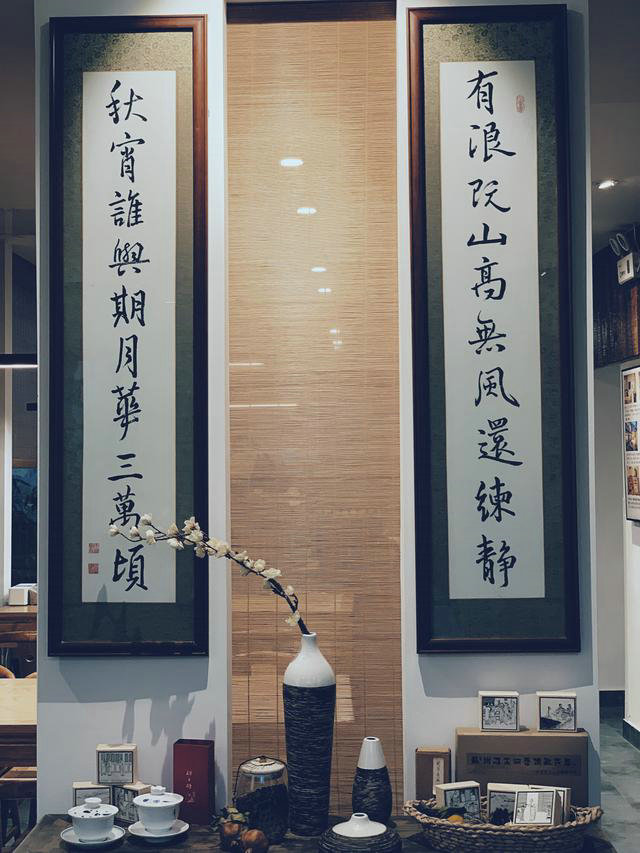 有浪既山高無風還練靜
秋宵誰與期月華三萬頃